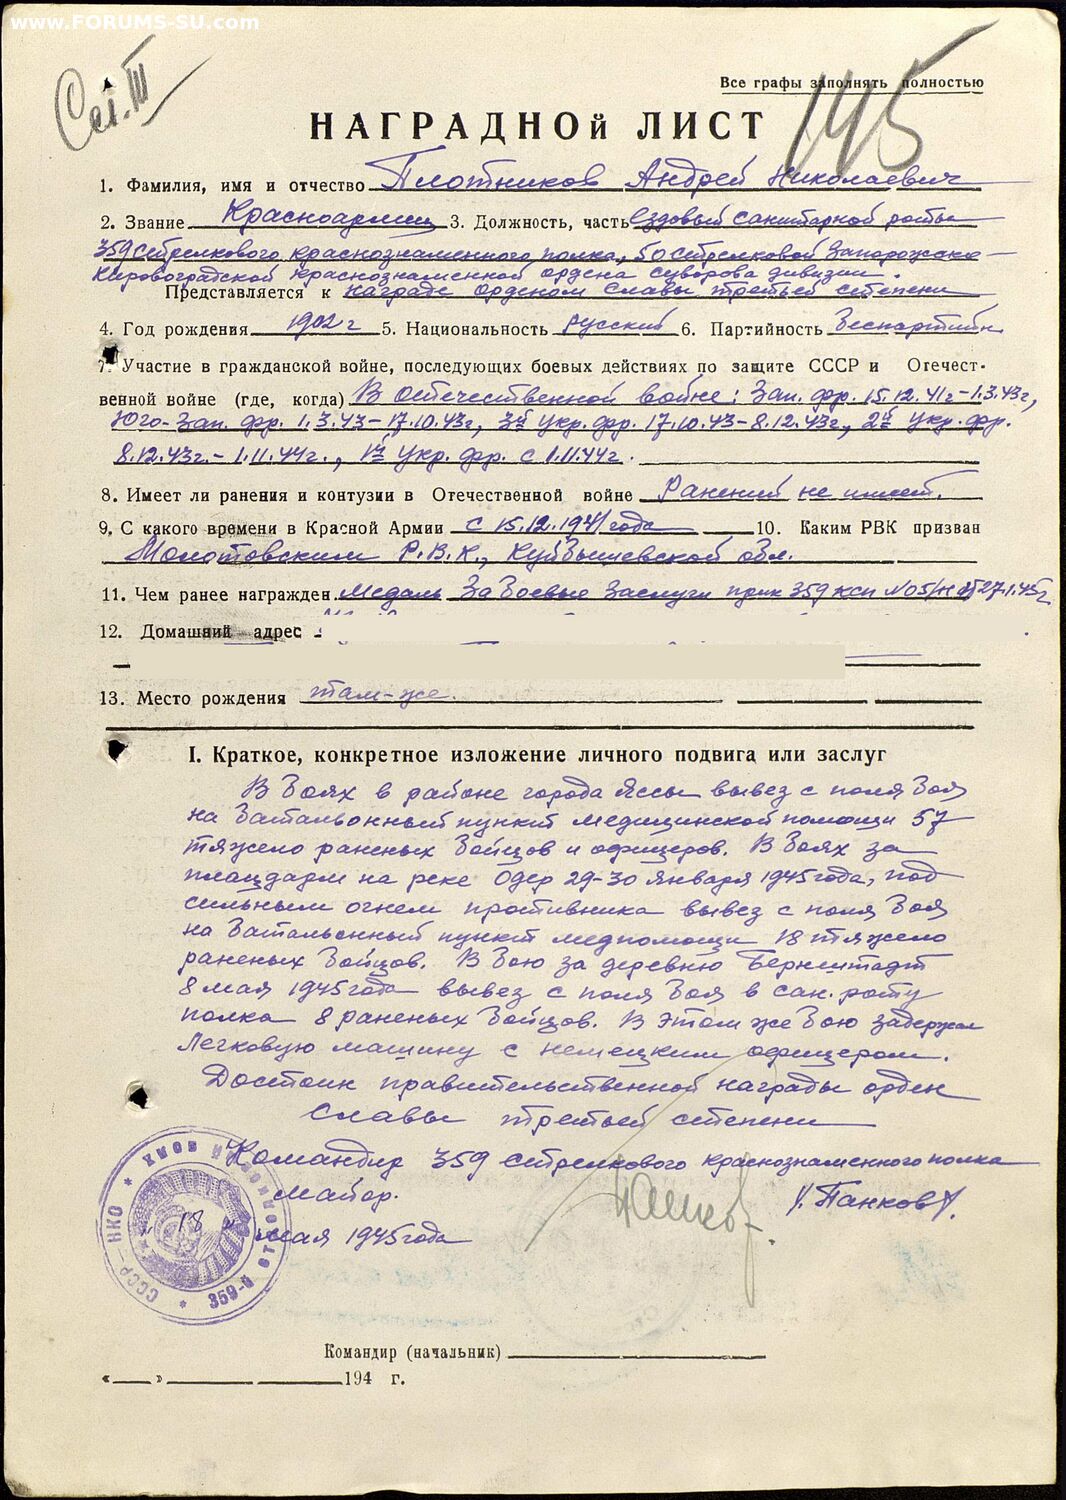 www.FORUMS-SU.com
Сл. III
Все графы заполнять полностью
145
НАГРАДНОй ЛИСТ
1. Фамилия, имя и отчество Плотников Андрей Николаевич
2. Звание Красноармеец 3. Должность, часть Ездовый санитарной роты
359 стрелкового краснознаменного полка, 50 стрелковой Запорожско-
Кировоградской краснознаменной ордена суворова дивизии.
Представляется к награде орденом Славы третьей степени
4. Год рождения 1902 г 5. Национальность русский 6. Партийность Беспартийн
7. Участие в гражданской войне, последующих боевых действиях по защите СССР и Отечест-
венной войне (где, когда) В отечественной войне: Зап. фр. 15.12.41г-1.3.43г,
Юго-Зап. фр. 1.3.43-17.10.43г, 3й Укр. фр. 17.10.43-8.12.43г, 2й Укр. фр.
8.12.43г.-1.11.44г., 1й Укр. фр. с 1.11.44г.
8. Имеет ли ранения и контузии в Отечественной войне Ранений не имеет.
9. С какого времени в Красной Армии с 15.12.1941 года 10. Каким РВК призван
Молотовским Р.В.К., Куйбышевской обл.
11. Чем ранее награжден Медаль За Боевые Заслуги прик 359 ксп №05/н от 27.1.45г
12. Домашний адрес
13. Место рождения там-же.
I. Краткое, конкретное изложение личного подвига или заслуг
В боях в районе города Яссы вывез с поля боя
на батальонный пункт медицинской помощи 57
тяжело раненых бойцов и офицеров. В боях за
плацдарм на реке Одер 29-30 января 1945 года, под
сильным огнем противника вывез с поля боя
на батальонный пункт медпомощи 18 тяжело
раненых бойцов. В бою за деревню Бернштадт
8 мая 1945 года вывез с поля боя в сан. роту
полка 8 раненых бойцов. В этом же бою задержал
Легковую машину с немецким офицером.
Достоин правительственной награды орден
Славы третьей степени
Командир 359 стрелкового краснознаменного полка
Майор. /. Панков/.
„ 18 " мая 1945 года
СССР-НКО * 359-й
Командир (начальник)
« » 194 г.